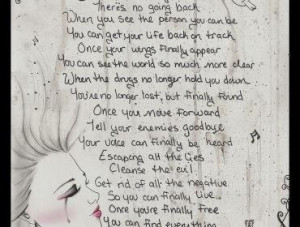 There's no going back
When you see the person you can be
You can get your life back on track
Once your wings finally appear
You can see the world so much more clear
When the drugs no longer hold you down
You're no longer lost, but finally found
Once you move forward
Tell your enemies goodbye
Your voice can finally be heard
Escaping all the lies
Cleanse the evil
Get rid of all the negative
So you can finally live
Once you're finally free
You can find everything